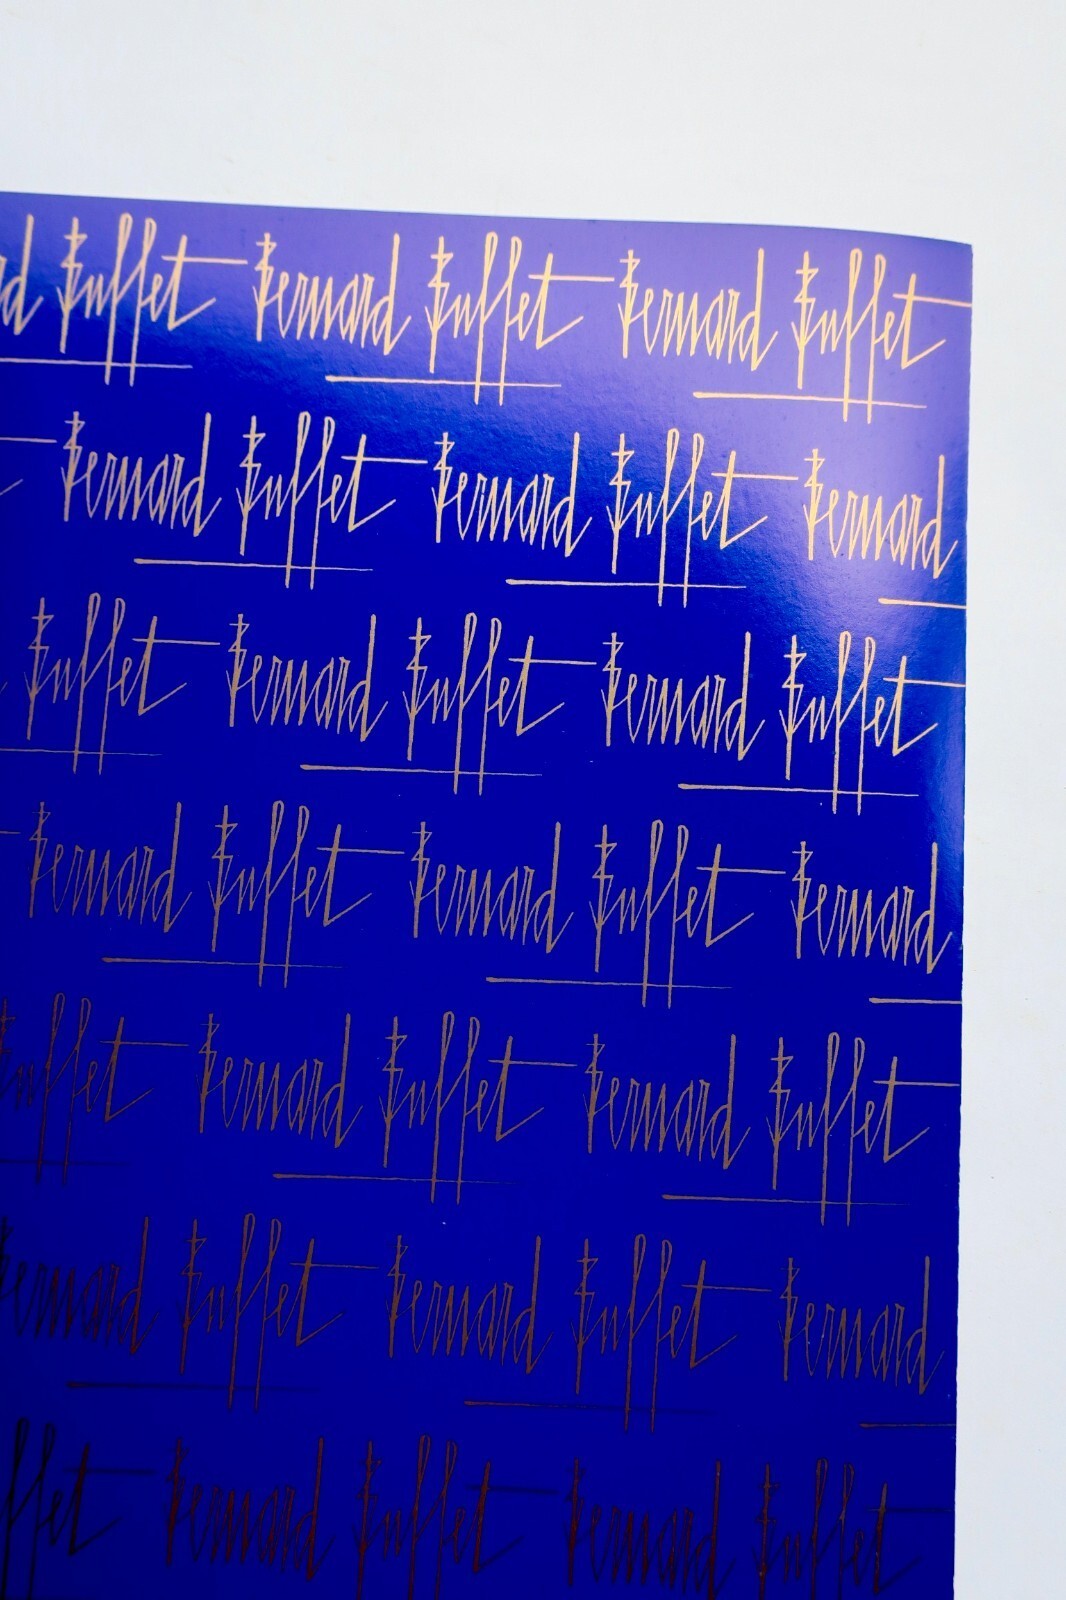 Buffet Bernard Buffet Bernard Buffet
Bernard Buffet Bernard Buffet Bernard
Buffet Bernard Buffet Bernard Buffet
Bernard Buffet Bernard Buffet Bernard
Buffet Bernard Buffet Bernard Buffet
Bernard Buffet Bernard Buffet Bernard
Bernard Buffet Bernard Buffet